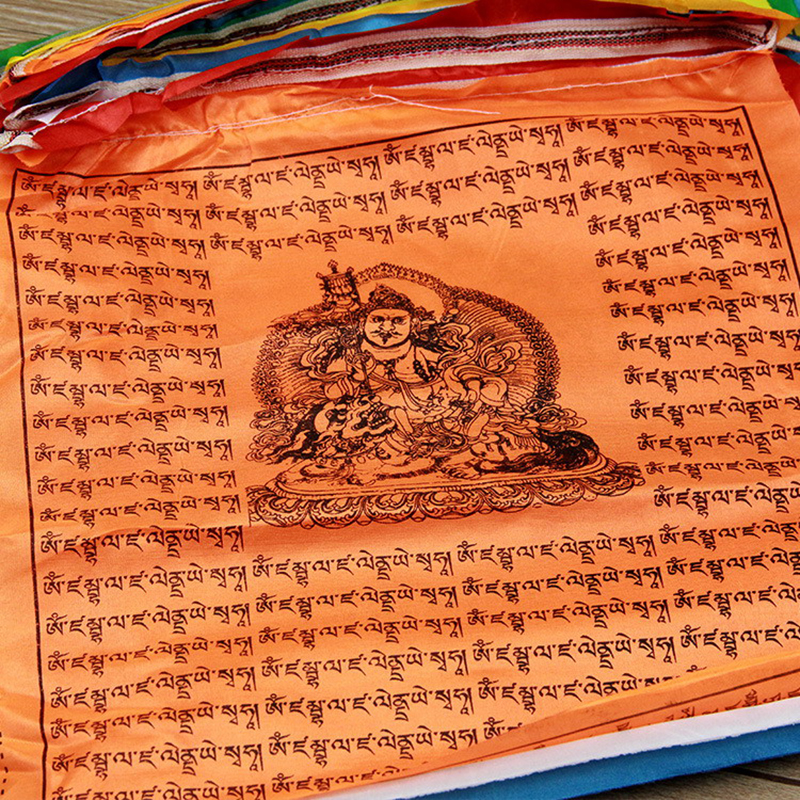 ཨོཾ་ཛམྦྷ་ལ་ཛ་ལེནྡྲ་ཡེ་སྭཧཱ། ཨོཾ་ཛམྦྷ་ལ་ཛ་ལེནྡྲ་ཡེ་སྭཧཱ། ཨོཾ་ཛམྦྷ་ལ་ཛ་ལེནྡྲ་ཡེ་སྭཧཱ། ཨོཾ་ཛམྦྷ་ལ་ཛ་ལེནྡྲ་ཡེ་སྭཧཱ།
ཨོཾ་ཛམྦྷ་ལ་ཛ་ལེནྡྲ་ཡེ་སྭཧཱ། ཨོཾ་ཛམྦྷ་ལ་ཛ་ལེནྡྲ་ཡེ་སྭཧཱ། ཨོཾ་ཛམྦྷ་ལ་ཛ་ལེནྡྲ་ཡེ་སྭཧཱ། ཨོཾ་ཛམྦྷ་ལ་ཛ་ལེནྡྲ་ཡེ་སྭཧཱ།
ཨོཾ་ཛམྦྷ་ལ་ཛ་ལེནྡྲ་ཡེ་སྭཧཱ། ཨོཾ་ཛམྦྷ་ལ་ཛ་ལེནྡྲ་ཡེ་སྭཧཱ། ཨོཾ་ཛམྦྷ་ལ་ཛ་ལེནྡྲ་ཡེ་སྭཧཱ། ཨོཾ་ཛམྦྷ་ལ་ཛ་ལེནྡྲ་ཡེ་སྭཧཱ།
ཨོཾ་ཛམྦྷ་ལ་ཛ་ལེནྡྲ་ཡེ་སྭཧཱ། ཨོཾ་ཛམྦྷ་ལ་ཛ་ལེནྡྲ་ཡེ་སྭཧཱ།
ཨོཾ་ཛམྦྷ་ལ་ཛ་ལེནྡྲ་ཡེ་སྭཧཱ། ཨོཾ་ཛམྦྷ་ལ་ཛ་ལེནྡྲ་ཡེ་སྭཧཱ།
ཨོཾ་ཛམྦྷ་ལ་ཛ་ལེནྡྲ་ཡེ་སྭཧཱ། ཨོཾ་ཛམྦྷ་ལ་ཛ་ལེནྡྲ་ཡེ་སྭཧཱ།
ཨོཾ་ཛམྦྷ་ལ་ཛ་ལེནྡྲ་ཡེ་སྭཧཱ། ཨོཾ་ཛམྦྷ་ལ་ཛ་ལེནྡྲ་ཡེ་སྭཧཱ།
ཨོཾ་ཛམྦྷ་ལ་ཛ་ལེནྡྲ་ཡེ་སྭཧཱ། ཨོཾ་ཛམྦྷ་ལ་ཛ་ལེནྡྲ་ཡེ་སྭཧཱ།
ཨོཾ་ཛམྦྷ་ལ་ཛ་ལེནྡྲ་ཡེ་སྭཧཱ། ཨོཾ་ཛམྦྷ་ལ་ཛ་ལེནྡྲ་ཡེ་
ཨོཾ་ཛམྦྷ་ལ་ཛ་ལེནྡྲ་ཡེ་སྭཧཱ། ཨོཾ་ཛམྦྷ་ལ་ཛ་ལེནྡྲ་ཡེ་
ཨོཾ་ཛམྦྷ་ལ་ཛ་ལེནྡྲ་ཡེ་སྭཧཱ། ཨོཾ་ཛམྦྷ་ལ་ཛ་ལེནྡྲ་ཡེ་
ཨོཾ་ཛམྦྷ་ལ་ཛ་ལེནྡྲ་ཡེ་སྭཧཱ། ཨོཾ་ཛམྦྷ་ལ་ཛ་ལེནྡྲ་ཡེ་
ཨོཾ་ཛམྦྷ་ལ་ཛ་ལེནྡྲ་ཡེ་སྭཧཱ། ཨོཾ་ཛམྦྷ་ལ་ཛ་ལེནྡྲ་ཡེ་
ཨོཾ་ཛམྦྷ་ལ་ཛ་ལེནྡྲ་ཡེ་སྭཧཱ། ཨོཾ་ཛམྦྷ་ལ་ཛ་ལེནྡྲ་ཡེ་སྭཧཱ། ཨོཾ་ཛམྦྷ་ལ་ཛ་ལེནྡྲ་ཡེ་སྭཧཱ། ཨོཾ་ཛམྦྷ་ལ་ཛ་ལེནྡྲ་
ཨོཾ་ཛམྦྷ་ལ་ཛ་ལེནྡྲ་ཡེ་སྭཧཱ། ཨོཾ་ཛམྦྷ་ལ་ཛ་ལེནྡྲ་ཡེ་སྭཧཱ། ཨོཾ་ཛམྦྷ་ལ་ཛ་ལེནྡྲ་ཡེ་སྭཧཱ། ཨོཾ་ཛམྦྷ་ལ་ཛ་ལེནྡྲ་
ཨོཾ་ཛམྦྷ་ལ་ཛ་ལེནྡྲ་ཡེ་སྭཧཱ། ཨོཾ་ཛམྦྷ་ལ་ཛ་ལེནྡྲ་ཡེ་སྭཧཱ། ཨོཾ་ཛམྦྷ་ལ་ཛ་ལེནྡྲ་ཡེ་སྭཧཱ། ཨོཾ་ཛམྦྷ་ལ་ཛ་ལེནྡྲ་
ཨོཾ་ཛམྦྷ་ལ་ཛ་ལེནྡྲ་ཡེ་སྭཧཱ། ཨོཾ་ཛམྦྷ་ལ་ཛ་ལེནྡྲ་ཡེ་སྭཧཱ། ཨོཾ་ཛམྦྷ་ལ་ཛ་ལེནྡྲ་ཡེ་སྭཧཱ། ཨོཾ་ཛམྦྷ་ལ་ཛ་
ཨོཾ་ཛམྦྷ་ལ་ཛ་ལེནྡྲ་ཡེ་སྭཧཱ། ཨོཾ་ཛམྦྷ་ལ་ཛ་ལེནྡྲ་ཡེ་སྭཧཱ། ཨོཾ་ཛམྦྷ་ལ་ཛ་ལེནྡྲ་ཡེ་
ཨོཾ་ཛམྦྷ་ལ་ཛ་ལེནྡྲ་ཡེ་སྭཧཱ། ཨོཾ་ཛམྦྷ་ལ་ཛ་ལེནྡྲ་ཡེ་སྭཧཱ། ཨོཾ་
ཨོཾ་ཛམྦྷ་ལ་ཛ་ལེནྡྲ་ཡེ་སྭཧཱ། ཨོཾ་ཛམྦྷ་ལ་